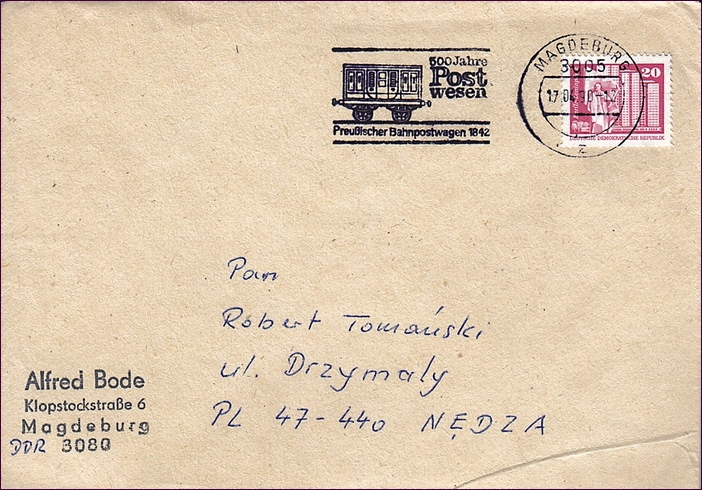 500 Jahre
Post
wesen
Preußischer Bahnpostwagen 1842
MAGDEBURG
3005
17.04.90-17
z
20
DEUTSCHE DEMOKRATISCHE REPUBLIK
Pan
Robert Tomański
ul. Drzymały
PL 47-440 NĘDZA
Alfred Bode
Klopstockstraße 6
Magdeburg
DDR 3080